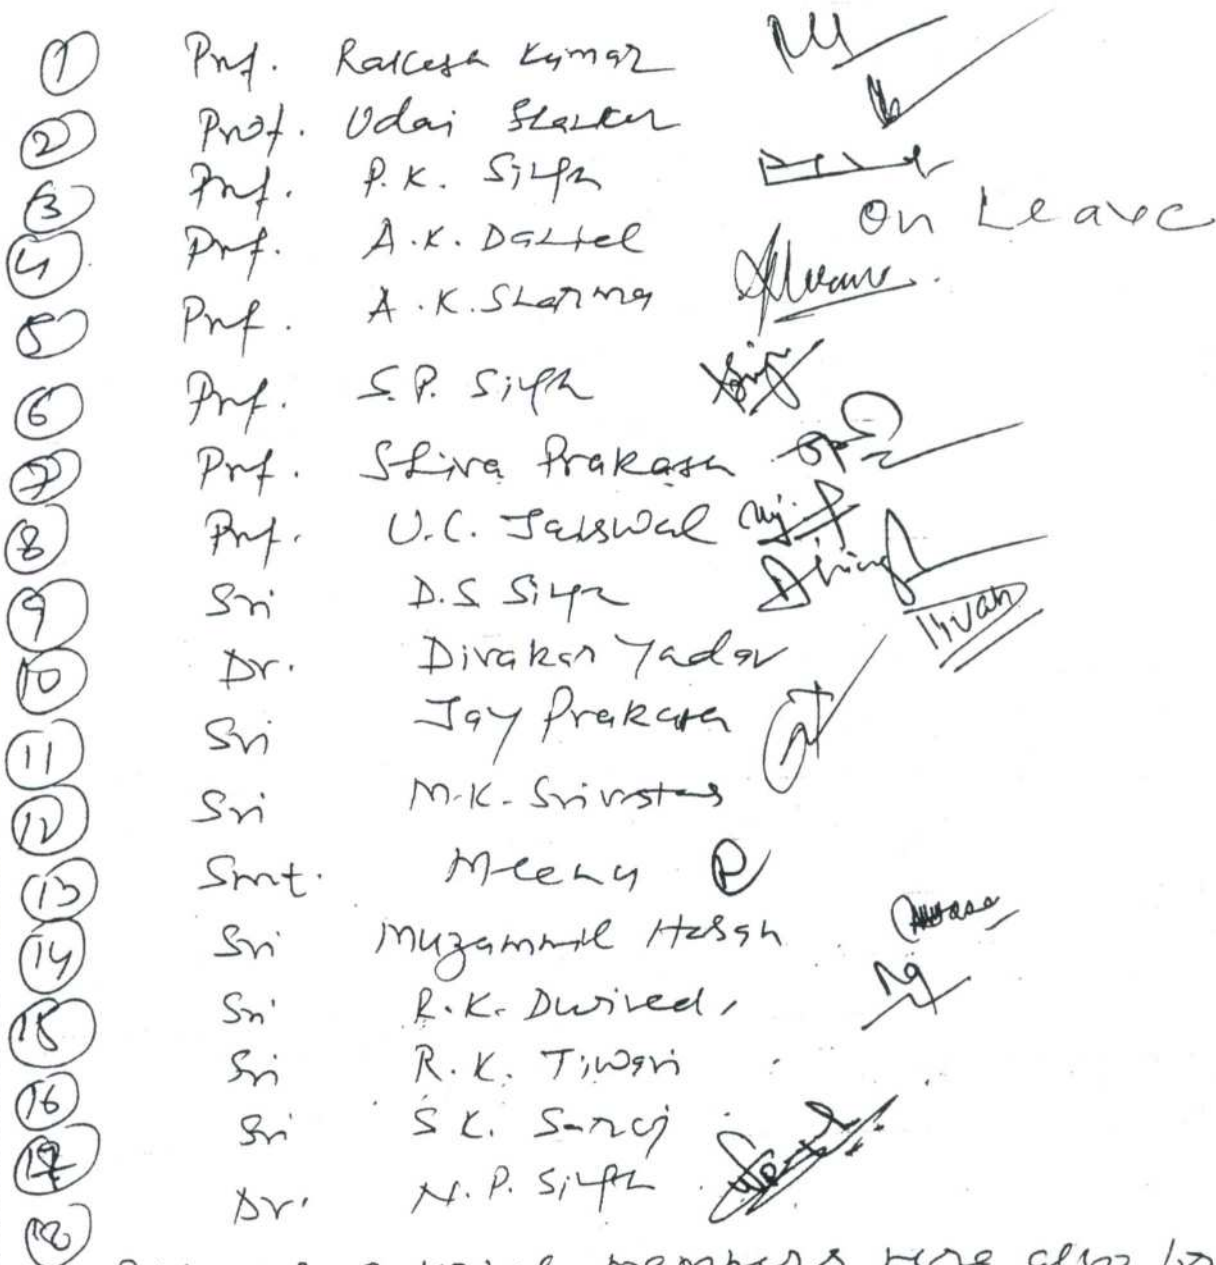 1 Prof. Rakesh Kumar
2 Prof. Udai Shanker
3 Prof. P.K. Singh
4 Prof. A.K. Daniel On Leave
5 Prof. A.K. Sharma
6 Prof. S.P. Singh
7 Prof. Shiva Prakash
8 Prof. U.C. Jaiswal
9 Sri D.S. Singh
10 Dr. Divakar Yadav
11 Sri Jay Prakash
12 Sri M.K. Srivastava
13 Smt. Meenu
14 Sri Muzammil Hasan
15 Sri R.K. Dwivedi
16 Sri R.K. Tiwari
17 Sri S.K. Saroj
18 Dr. N.P. Singh
members were also